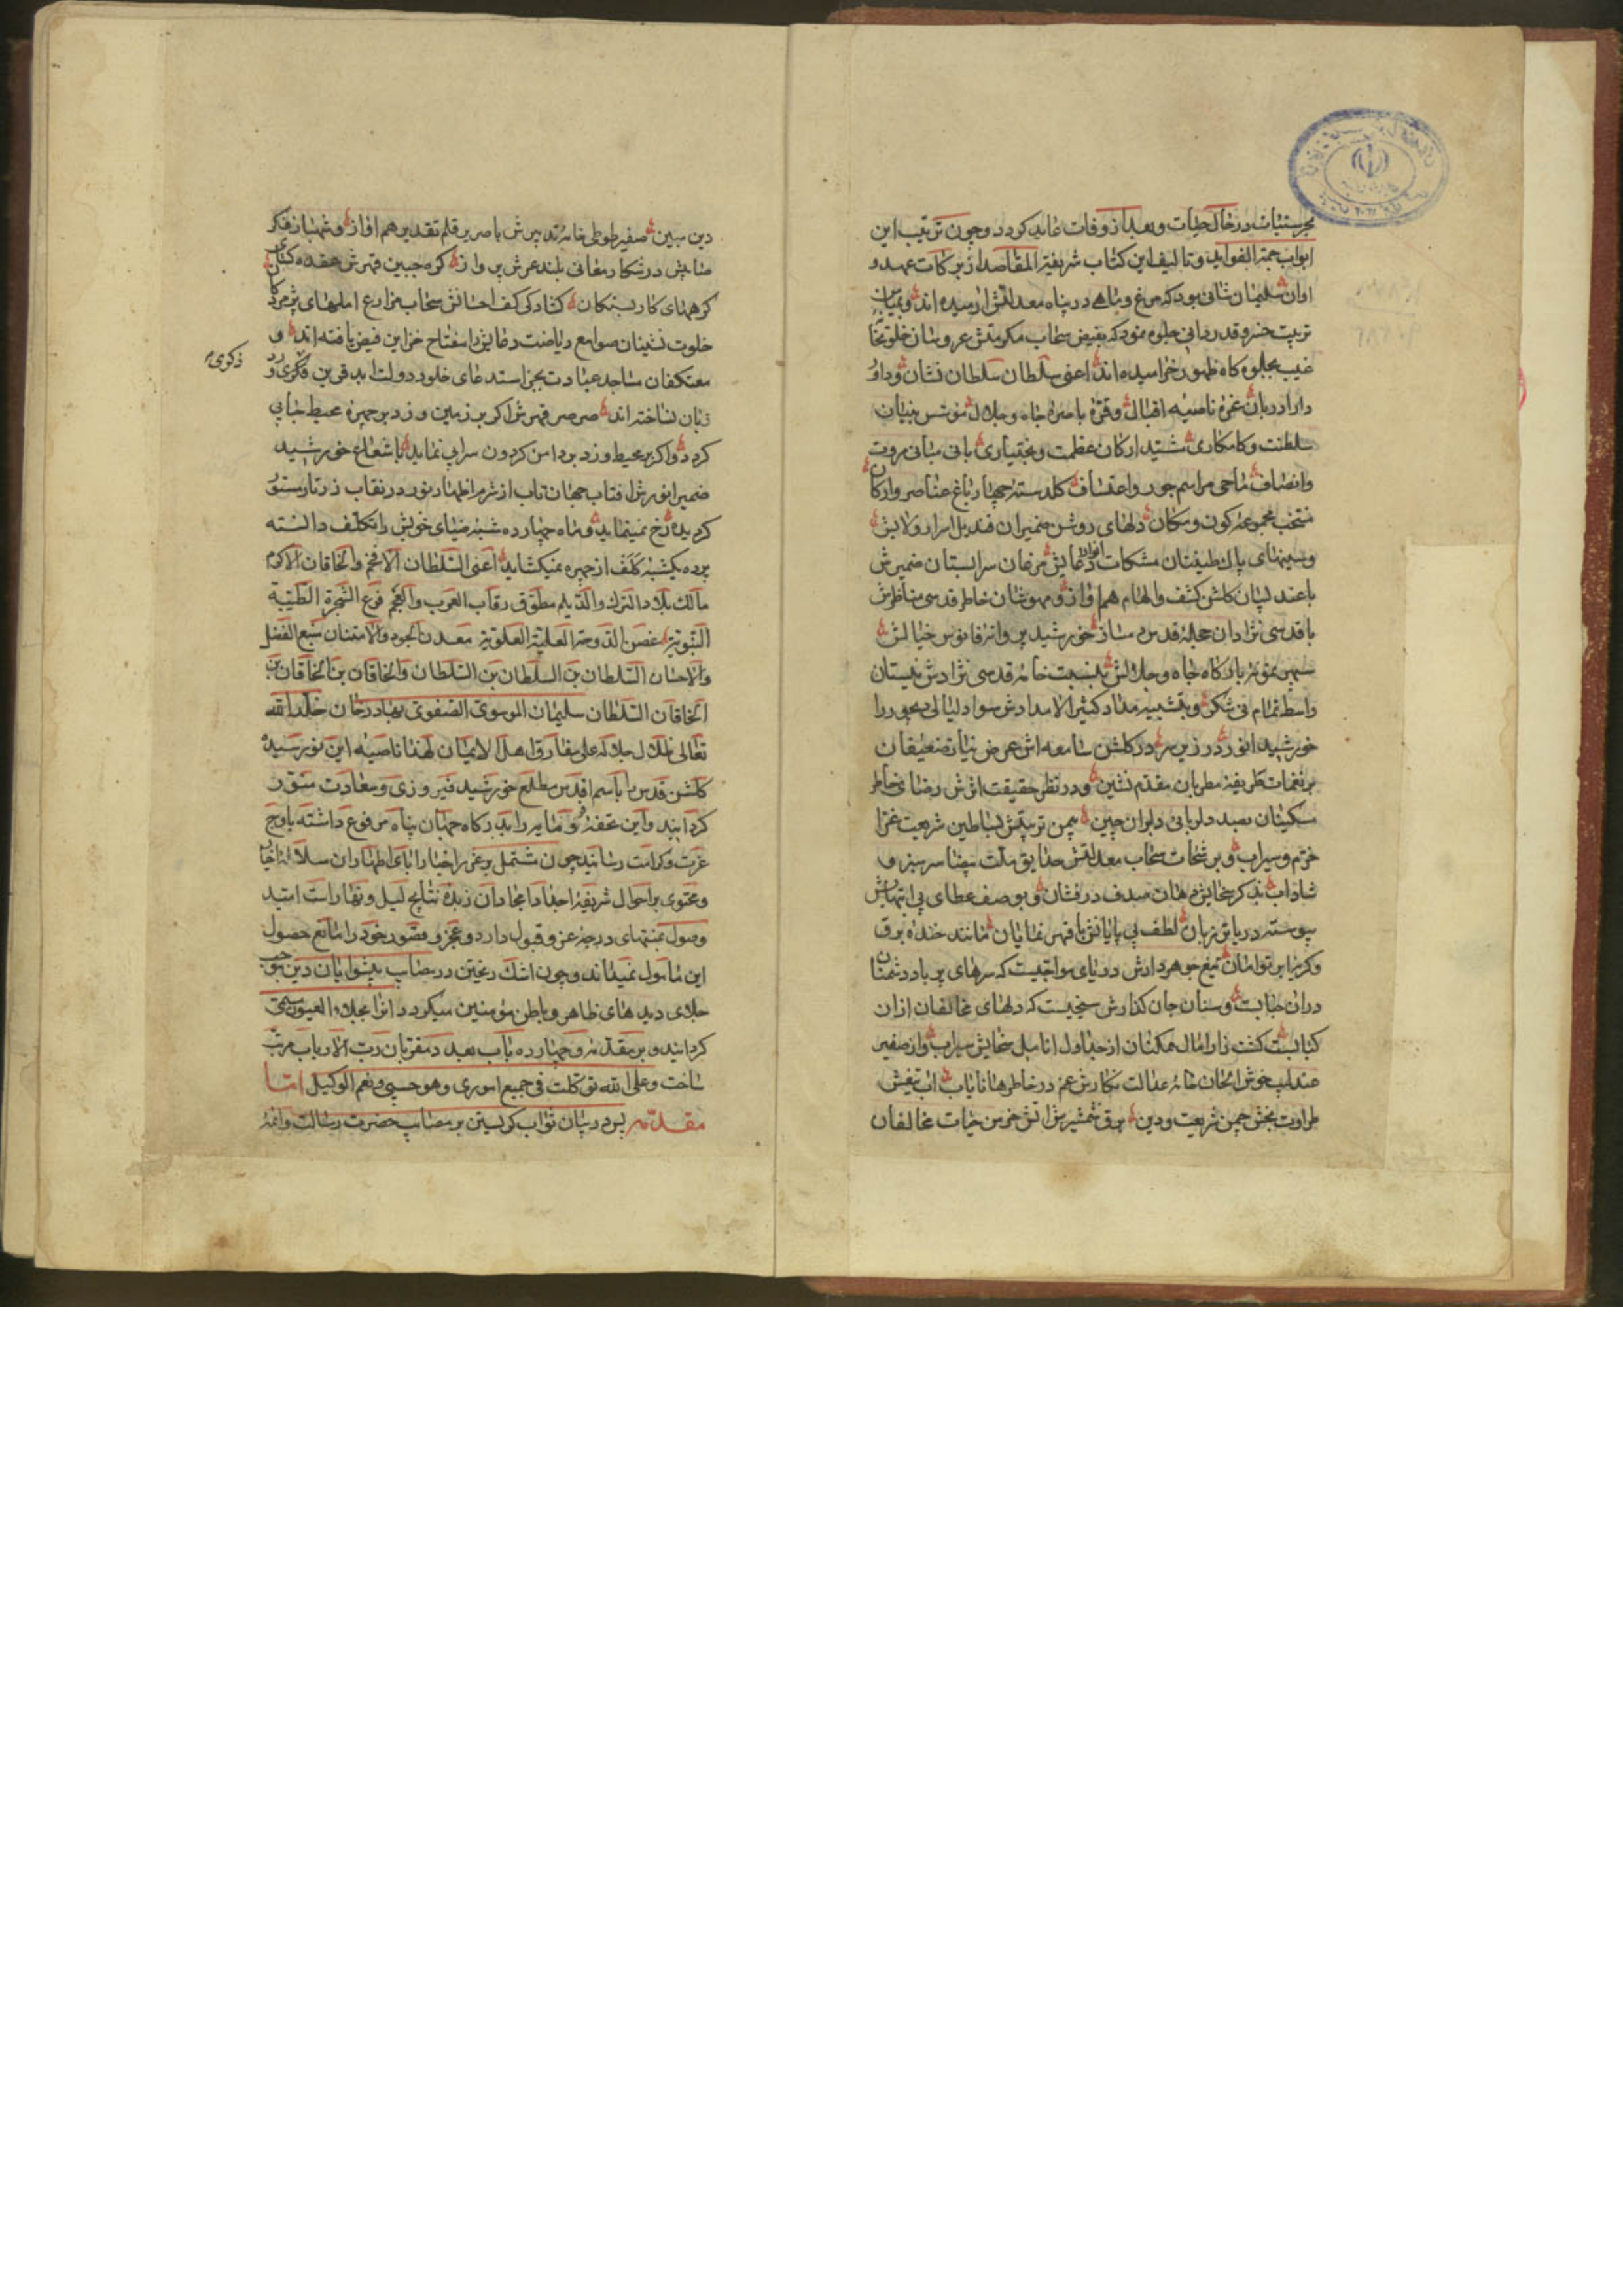 در حال حیات و بعد از وفات عاید کردد و چون ترتیب این
ابواب جمة الفواید و تالیف این کتاب شریفة المقاصد از برکات عهد و
اوان سلیمان ثانی بود که مرغ و ماهی در پناه معدلتش ارمیده اند
تربیت خسرو قدردانی جلوه نمود که بفیض سحاب مکرمتش عروسان
غیب بجلوه کاه ظهور خرامیده اند اعنی سلطان سلطان نشان و داور
دارا دربان غره ناصیه اقبال و قره باصره جاه و جلال مؤسس بنیان
سلطنت و کامکاری مشید ارکان عظمت و بختیاری بانی مبانی مروت
وانصاف ماحی مراسم جور و اعتساف کلدسته چهار باغ عناصر و ارکان
منتخب مجموعه کون و مکان دلهای روشن ضمیران قندیل اسرار ولایش
و سینهای پاک طینتان مشکات انوار دعایش مرغان سرابستان ضمیرش
با عندلیبان کلشن کشف والهام هم اواز و مهوشان خاطر قدسی مناظرش
با قدسی نژادان حجله قدس دمساز خورشید پروانه فانوس خیالش
سپهر نمونه بارکاه جاه و جلالش بنسبت خامه قدسی نژادش نیستان
را سط تمام نی شکر و بتشبیه مداد کثیر الامدادش سواد لیالی دیجور را
خورشید انور در زیر سر در کلشن سامعه اش عرض نیاز ضعیفان
بر نغمات طریفه مطربان مقدم نشین و در نظر حقیقت اثرش رضای خاطر
مسکینان بصد دلربائی دلبران چین بیمن تربیتش بساطین شریعت غرا
خرم و سیراب و برشحات سحاب معدلتش حدایق ملت بیضا سرسبز و
شاداب بذکر سخایش دهان صدف درفشان و بوصف عطای بی انتهایش
پیوسته دریا تر زبان لطف بی پایانش با قهر نمایان مانند خنده برق
و کریه ابر توامان تیغ جوهردارش دریای مواجیست که سرهای پر باد دشمنان
دران حبابست و سنان جان کذارش سیخیست که دلهای مخالفان ازان
کبابست کشت زار امال ممکنان از جداول انامل سخایش سیراب و از صفیر
عندلیب خوش الحان خامه عدالت نکارش غم در خاطرها نایاب اب تیغش
طراوت بخش چمن شریعت و دین برق شمشیرش اتش خرمن حیات مخالفان
دین مبین صفیر طوطی خامه تدبیرش با صریر قلم تقدیر هم اواز و شهباز فکر
در شکار معانی بلند عرش پرواز کره جبین قهرش عقده کشای
کرههای کار بستکان کشادکی کف احسانش سحاب مزارع املهای پژمردکان
خلوت نشینان صوامع ریاضت دعایش را مفتاح خزاین فیض یافته اند و
معتکفان مساجد عبادت بجز استدعای خلود دولت ابد قرین فکری ورد
ذکری
زبان نساخته اند صرصر قهرش اکر بر زمین وزد بر چهره محیط حبابی
کردد و اکر بر محیط وزد بر دامن کردون سرابی نماید با شعاع خورشید
ضمیر انورش افتاب جهان تاب از شرم اظهار نور در نقاب زرتار مستور
کردیده رخ نمینماید و ماه چهارده شبه ضیای خویش را تکلف دانسته
پرده یکشبه کلف از چهره نمیکشاید اعنی السلطان الافخم والخاقان الاکرم
مالک بلاد الترک والدیلم مطوق رقاب العرب والعجم فرع الشجرة الطیبة
النبویة غصن الدوحة العلیة العلویة معدن الجود والامتنان منبع الفضل
والاحسان السلطان بن السلطان بن السلطان والخاقان بن الخاقان بن
الخاقان السلطان سلیمان الموسوی الصفوی بهادر خان خلد الله
تعالی ظلال جلاله علی مفارق اهل الایمان لهذا ناصیه این نورسیده
کلشن قدس را باسم اقدس مطلع خورشید فیروزی و سعادت منور
کردانید و این تحفه را بدرکاه جهان پناه مرفوع داشته باوج
عزت و کرامت رسانید چون مشتمل بر غرر اخبار ابای اطهار ان سلاله اخیار
و محتوی بر احوال شریفه اجداد امجاد ان زبده نتایج لیل و نهار است امید
وصول بمنتهای درجه عز و قبول دارد و عجز و قصور خود را مانع حصول
این مامول نمیداند و چون اشک ریختن در مصایب پیشوایان دین موجب
جلای دیدهای ظاهر و باطن مؤمنین میکردد انرا بجلاء العیون مسمی
کردانید و بر مقدمه و چهارده باب بعدد مقربان رب الارباب مرتب
ساخت و علی الله توکلت فی جمیع اموری و هو حسبی و نعم الوکیل اما
مقدمه پس در بیان ثواب کریستن بر مصایب حضرت رسالت و ائمه